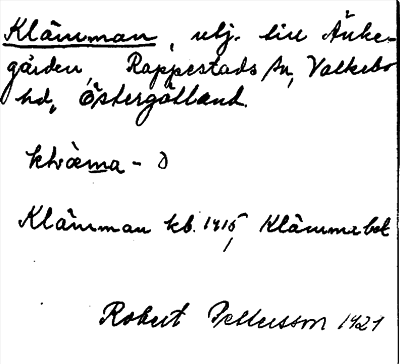 Klämman, utj. till Änke-
gården, Rappestads sn, Valkebo
hd, Östergötland.
Klämman kb. 1915, Klämma
Robert Pettersson 1921